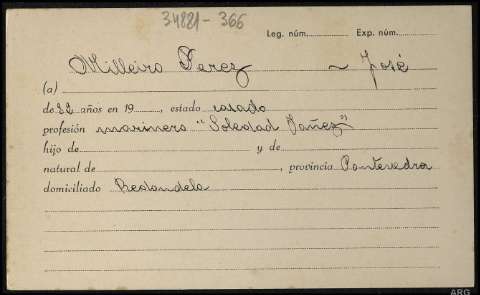 34821-366
Leg. núm. Exp. núm.
Milleiro Perez ~ José
(a)
de 22 años en 19, estado casado
profesión marinero "Soledad Yañez"
hijo de y de
natural de, provincia Pontevedra
domiciliado Redondela
ARG